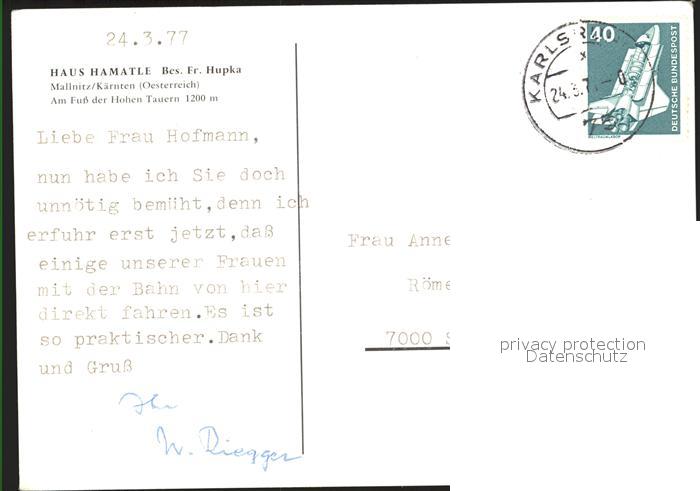 24.3.77
HAUS HAMATLE Bes. Fr. Hupka
Mallnitz/Kärnten (Oesterreich)
Am Fuß der Hohen Tauern 1200 m
Liebe Frau Hofmann,
nun habe ich Sie doch
unnötig bemüht,denn ich
erfuhr erst jetzt,daß
einige unserer Frauen
mit der Bahn von hier
direkt fahren.Es ist
so praktischer.Dank
und Gruß
Ihr
W. Riegger
KARLSR
24.3.77
40
DEUTSCHE BUNDESPOST
WELTRAUMLABOR
Frau Anne
Röme
7000 S
privacy protection
Datenschutz